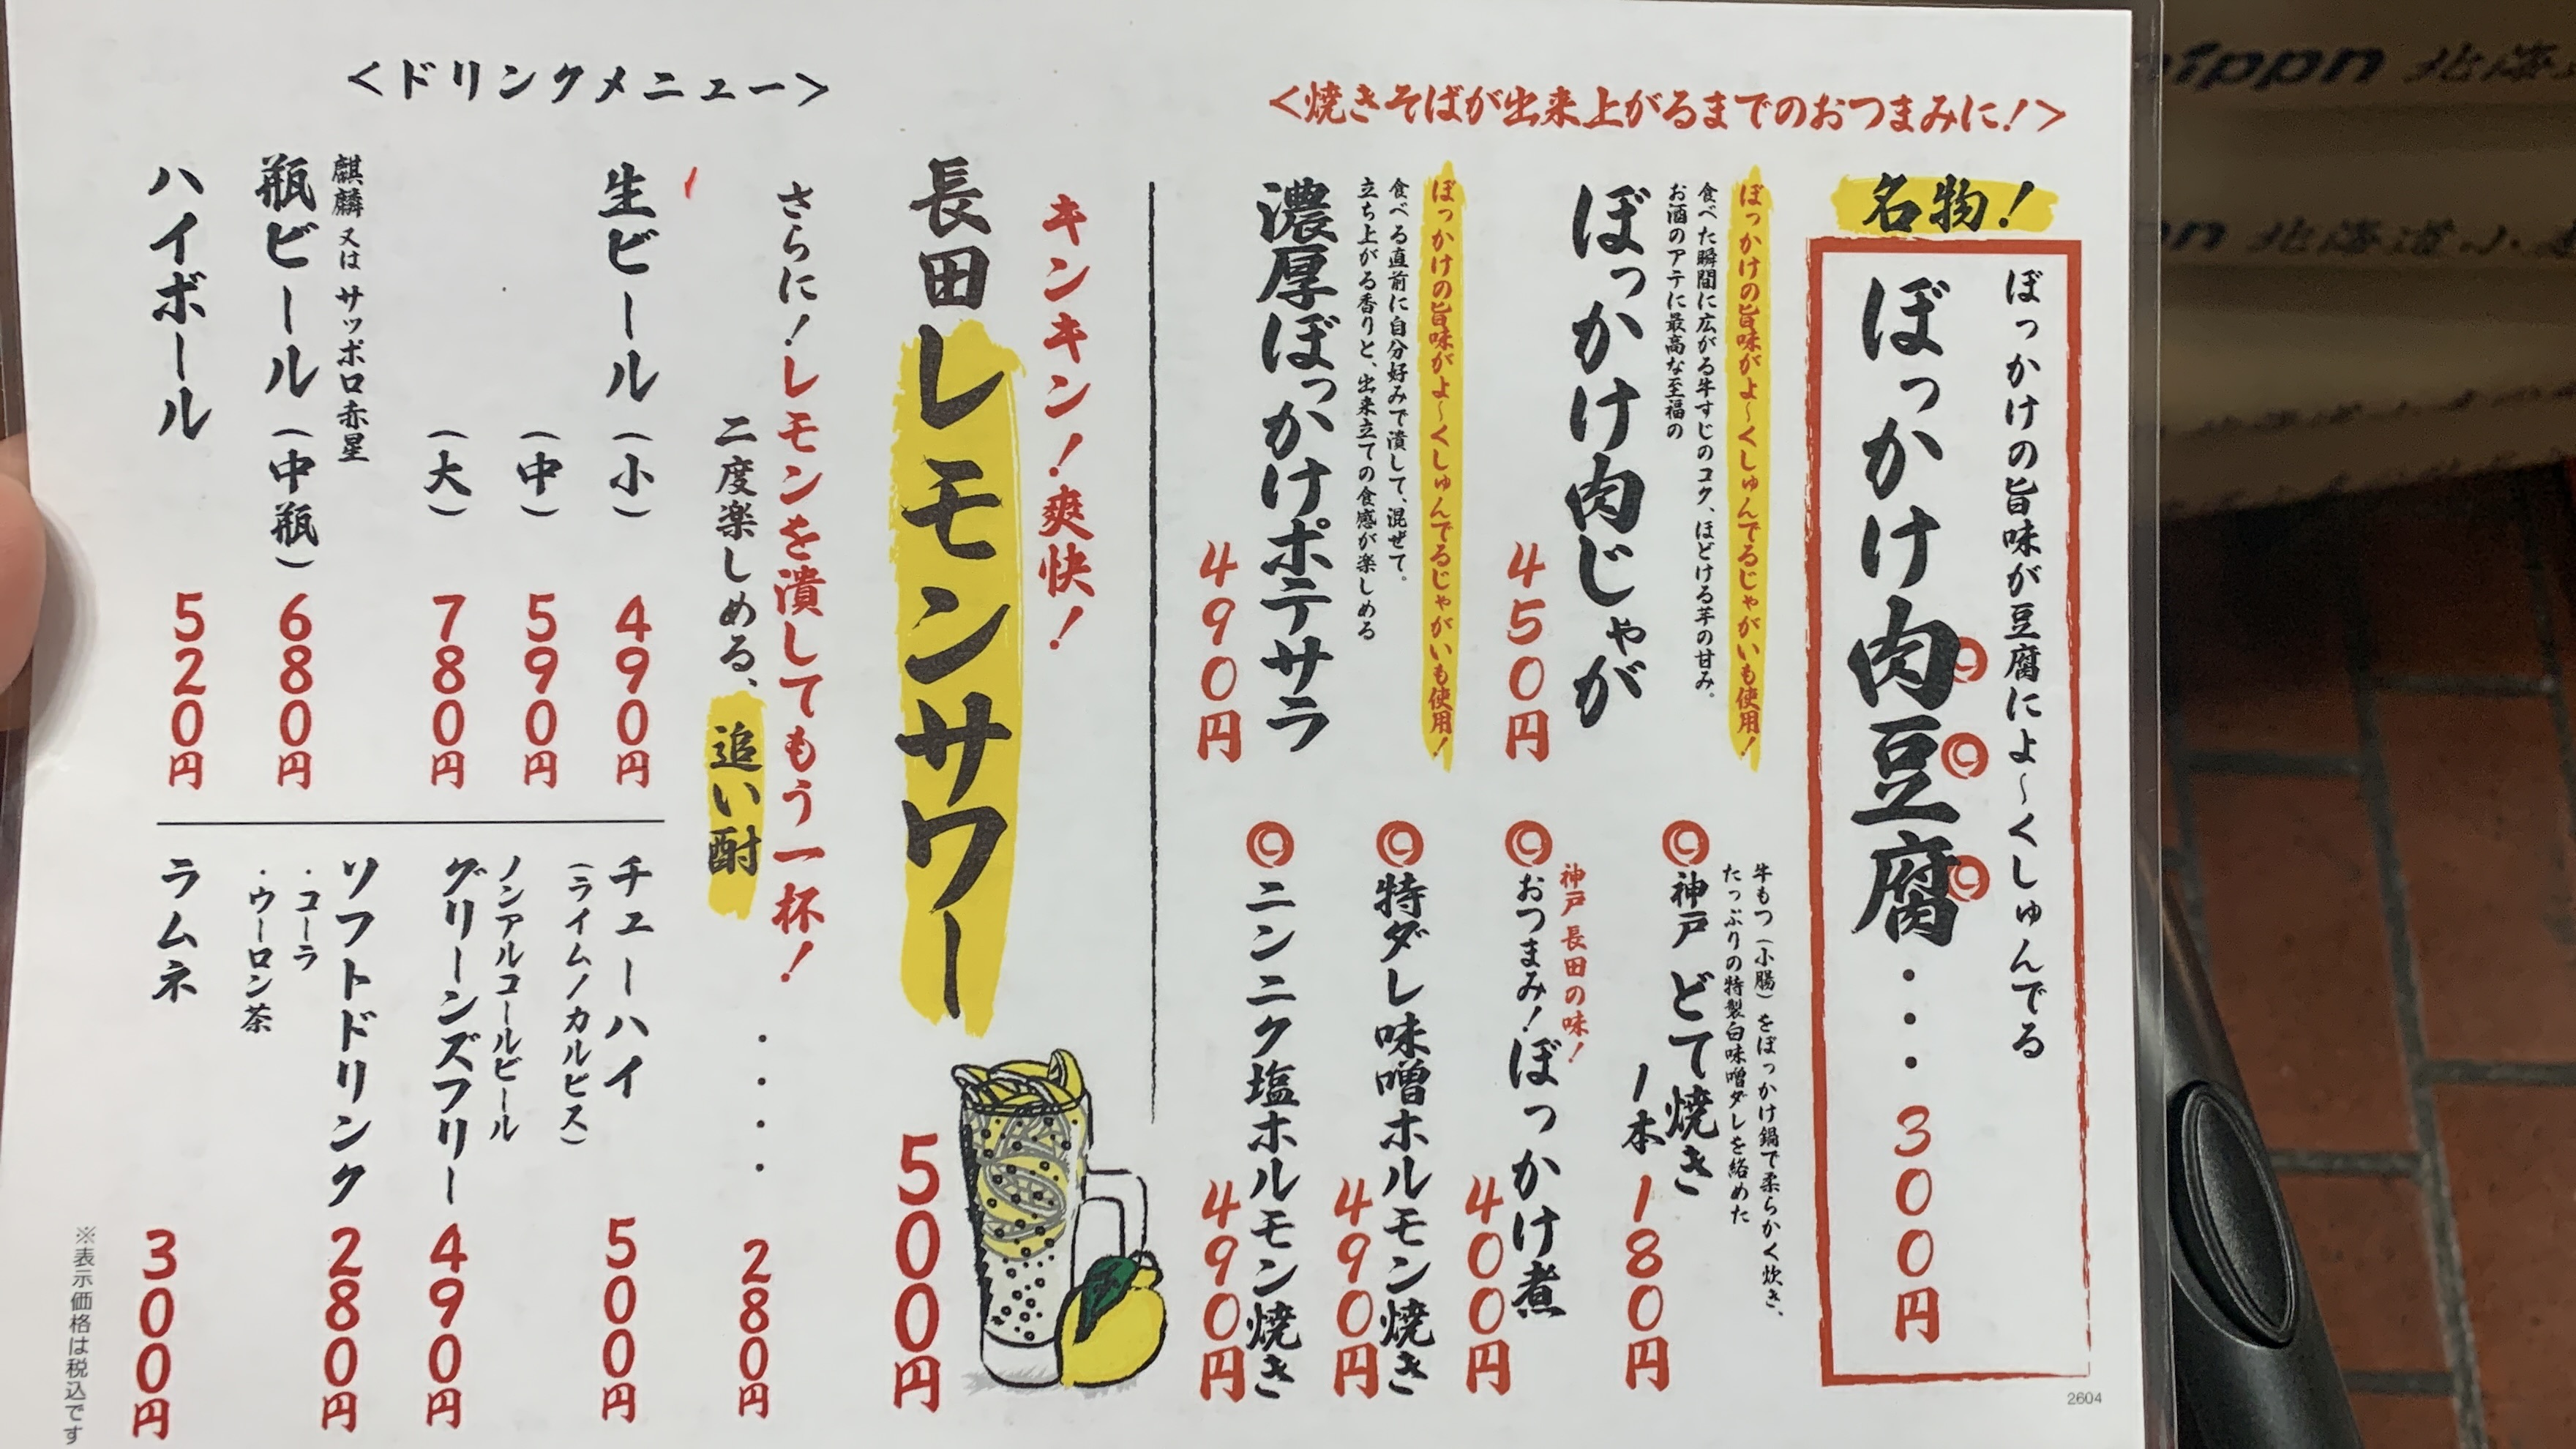 <焼きそばが出来上がるまでのおつまみに!>
名物!
ぼっかけの旨味が豆腐によ～くしゅんでる
ぼっかけ肉豆腐・・・300円
ぼっかけの旨味がよ～くしゅんでるじゃがいも使用!
食べた瞬間に広がる牛すじのコク、ほどける芋の甘み。
お酒のアテに最高な至福の
ぼっかけ肉じゃが
450円
ぼっかけの旨味がよ～くしゅんでるじゃがいも使用!
食べる直前に自分好みで潰して、混ぜて。
立ち上がる香りと、出来立ての食感が楽しめる
濃厚ぼっかけポテサラ
490円
牛もつ(小腸)をぼっかけ鍋で柔らかく炊き、
たっぷりの特製白味噌ダレを絡めた
◎神戸 どて焼き
1本 180円
神戸 長田の味!
◎おつまみ!ぼっかけ煮
400円
◎特ダレ味噌ホルモン焼き
490円
◎ニンニク塩ホルモン焼き
490円
<ドリンクメニュー>
キンキン!爽快!
長田レモンサワー
500円
さらに!レモンを潰してもう一杯!
二度楽しめる、追い酎・・・・280円
生ビール(小) 490円
(中) 590円
(大) 780円
麒麟 又は サッポロ赤星
瓶ビール(中瓶) 680円
ハイボール 520円
チューハイ 500円
(ライム/カルピス)
ノンアルコールビール
グリーンズフリー 490円
ソフトドリンク 280円
・コーラ
・ウーロン茶
ラムネ 300円
※表示価格は税込です
2604
ippn 北海
n 北海道小